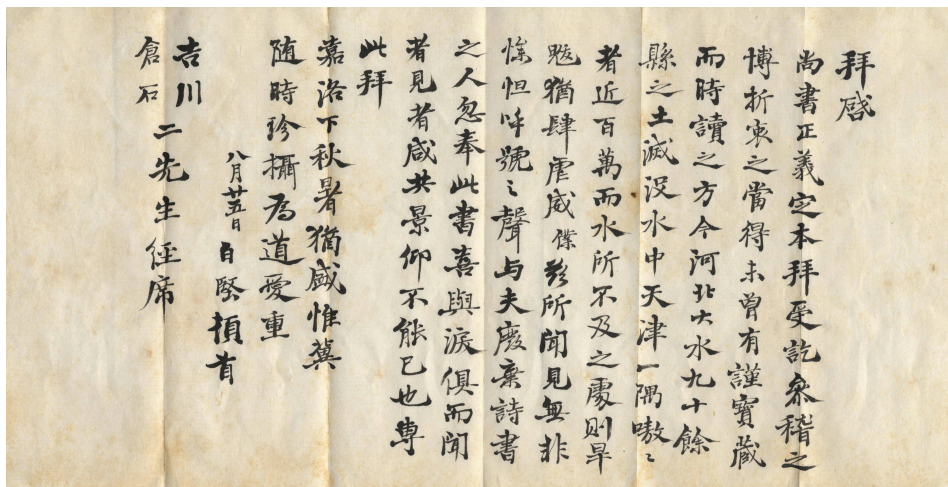 拜啓
尚書正義定本拜受訖衆稽之
博折衷之當得未曾有謹寶藏
而時讀之方今河北大水九十餘
縣之土滅没水中天津一隅嗷〻
者近百萬而水所不及之處則旱
魃猶肆虐威僕於所聞見無非
慘怛呼號〻聲与夫廢棄詩書
之人忽奉此書喜與淚俱而聞
者見者咸共景仰不能已也專
此拜
嘉洛下秋暑猶盛惟冀
随時珍攝為道愛重
八月廿五日 白堅頓首
吉川
倉石 二先生經席